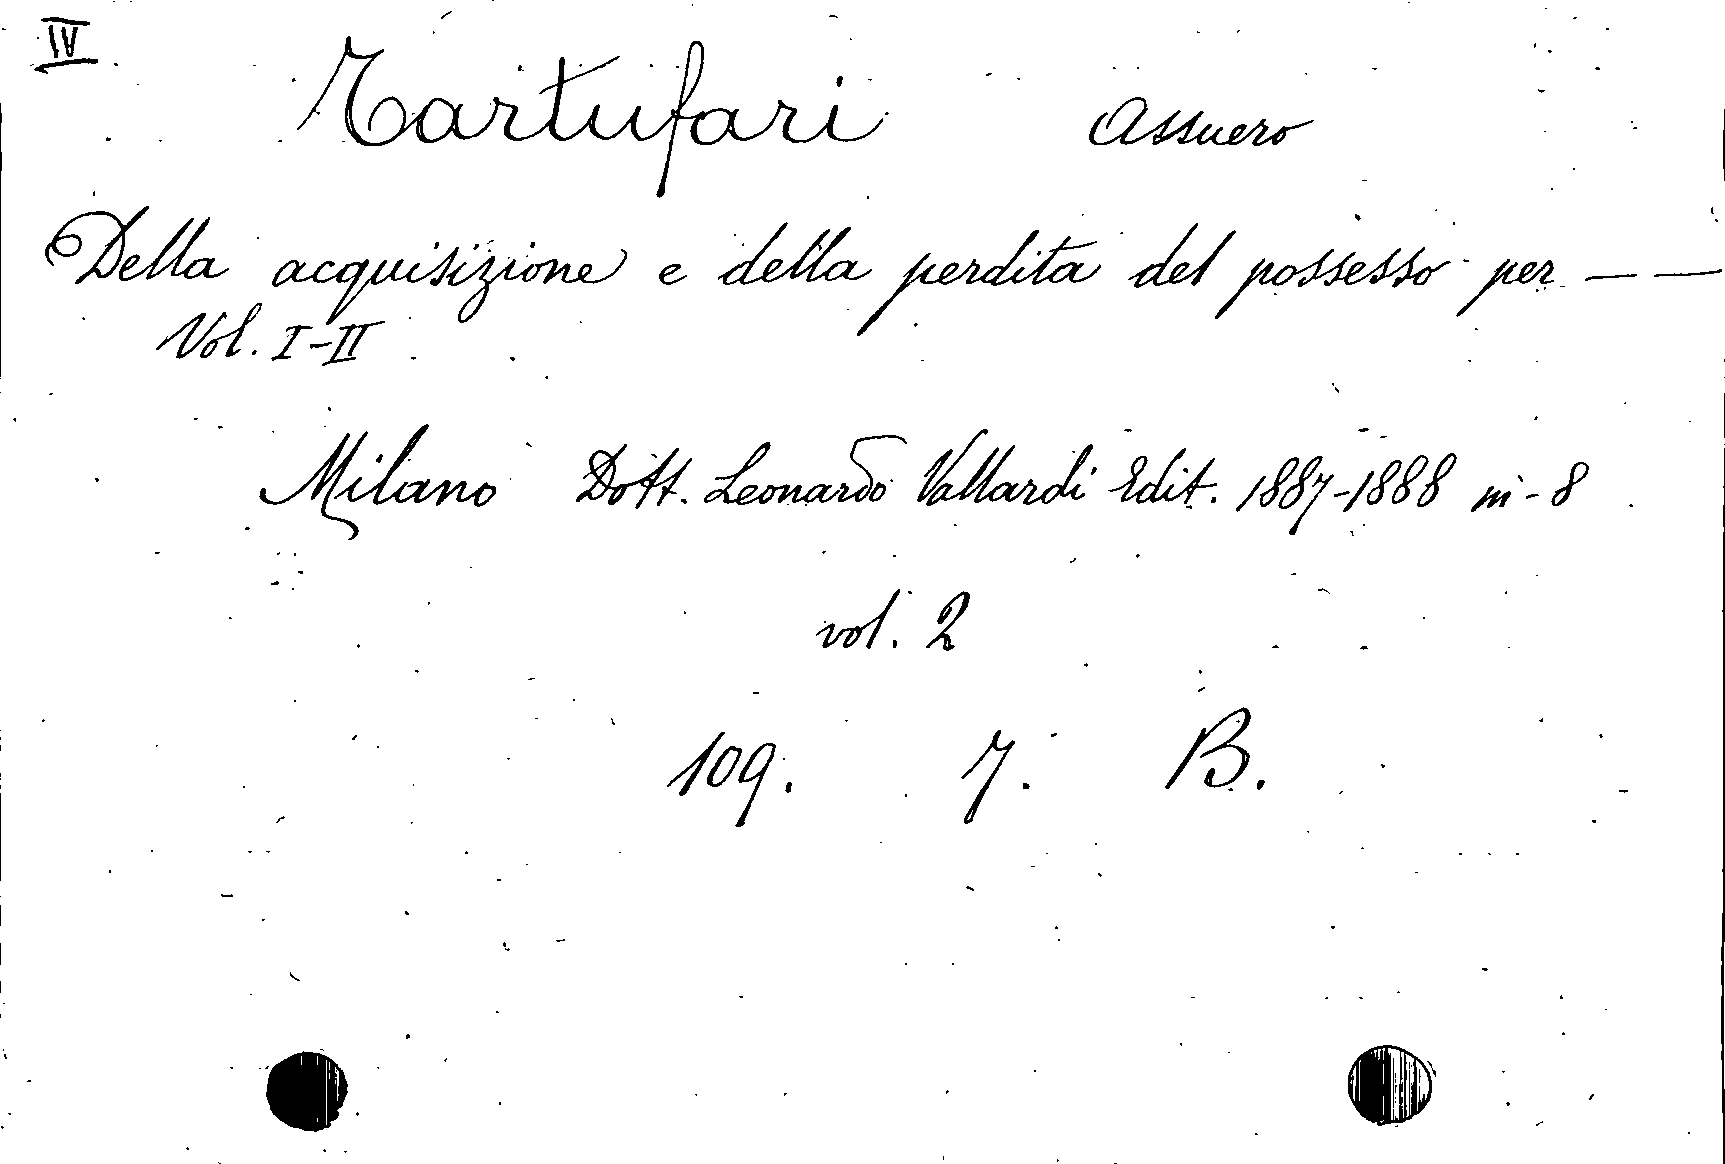 IV
Tartufari Assuero
Della acquisizione e della perdita del possesso per — —
Vol. I-II
Milano Dott. Leonardo Vallardi Edit. 1887-1888 in-8
vol. 2
109. 7. B.